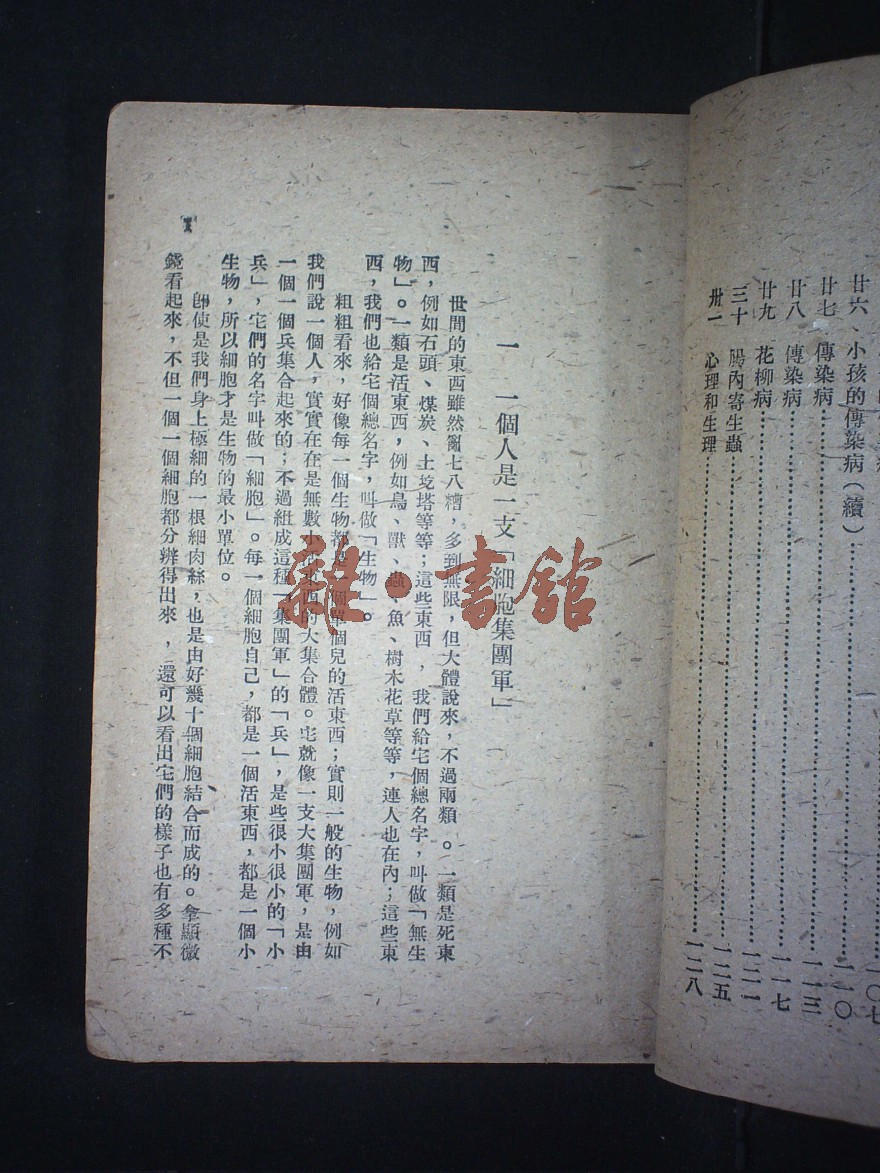 小孩的傳染病(續)……一一〇
廿七 傳染病……一一三
廿八 傳染病……一一七
廿九 花柳病……一二一
三十 腸內寄生蟲……一二五
卅一 心理和生理……一二八
一 一個人是一支「細胞集團軍」
世間的東西雖然亂七八糟,多到無限,但大體說來,不過兩類。一類是死東
西,例如石頭、煤炭、土圪塔等等;這些東西,我們給它個總名字,叫做「無生
物」。一類是活東西,例如鳥、獸、蟲、魚、樹木花草等等,連人也在內;這些東
西,我們也給它個總名字,叫做「生物」。
粗粗看來,好像每一個生物都是一個單個兒的活東西;實則一般的生物,例如
我們說一個人,實實在在是無數小活東西的大集合體。宅就像一支大集團軍,是由
一個一個兵集合起來的;不過組成這種「集團軍」的「兵」,是些很小很小的「小
兵」,宅們的名字叫做「細胞」。每一個細胞自己,都是一個活東西,都是一個小
生物,所以細胞才是生物的最小單位。
卽使是我們身上極細的一根細肉絲,也是由好幾十個細胞結合而成的。拿顯微
鏡看起來,不但一個一個細胞都分辨得出來,還可以看出宅們的樣子也有多種不
1
雜·書館